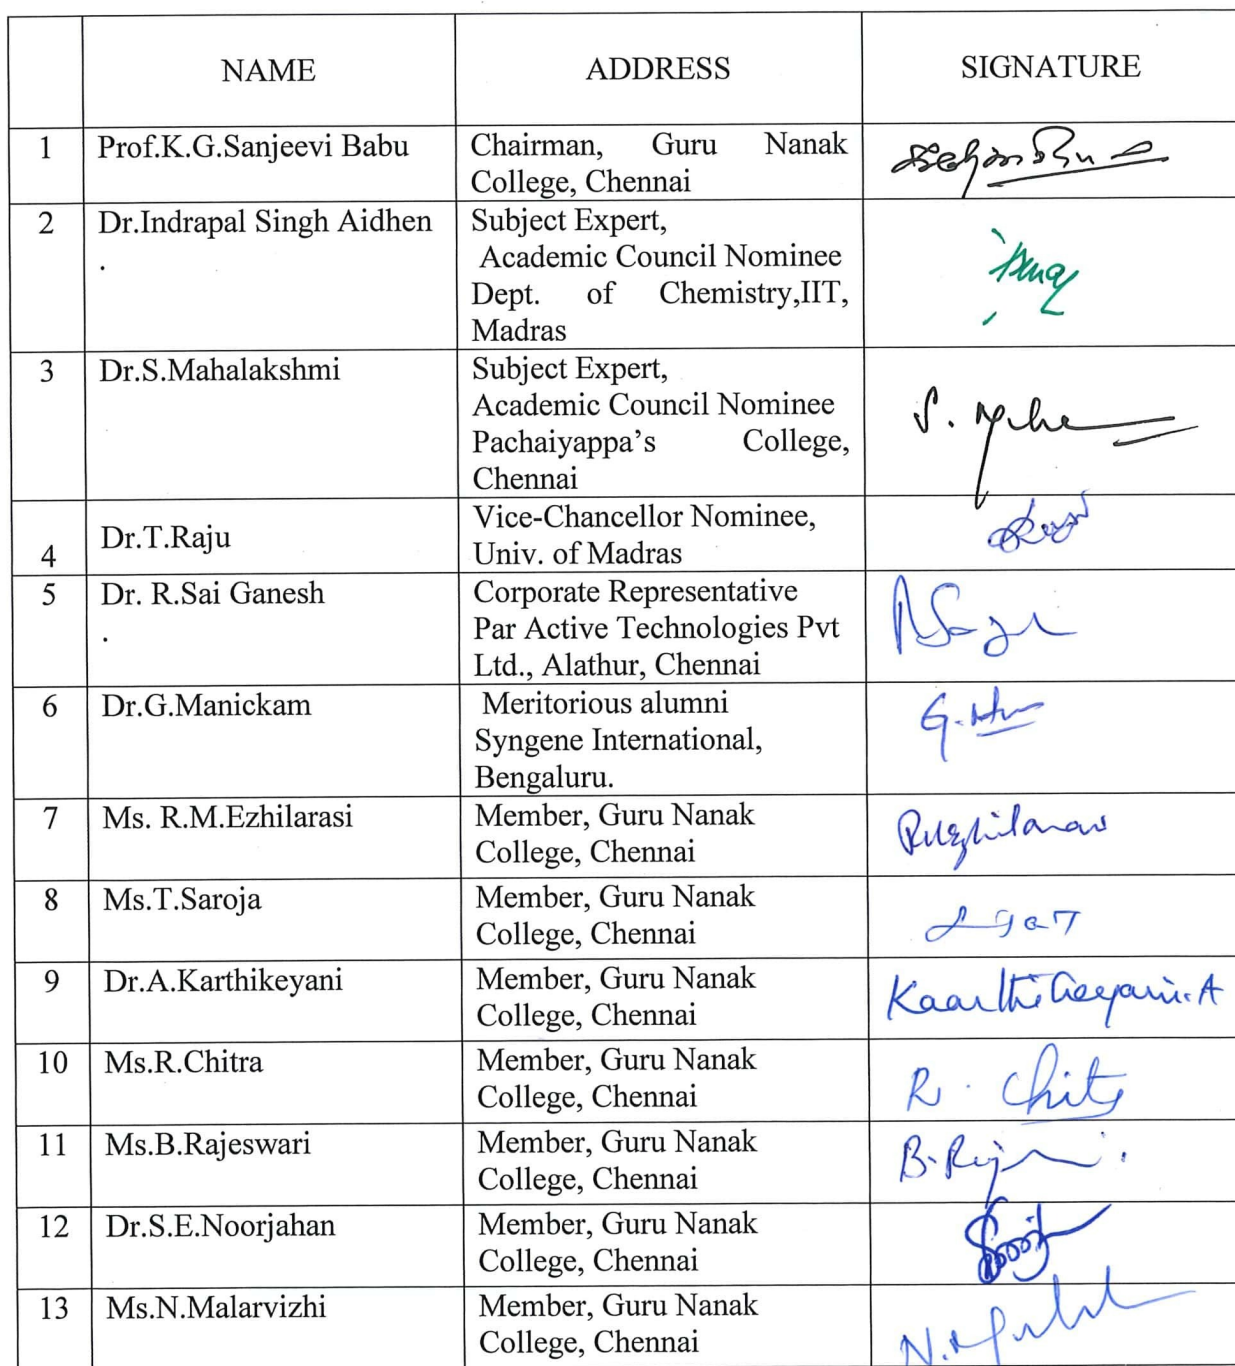 NAME ADDRESS SIGNATURE
1 Prof.K.G.Sanjeevi Babu Chairman, Guru Nanak
College, Chennai
2 Dr.Indrapal Singh Aidhen Subject Expert,
. Academic Council Nominee
Dept. of Chemistry,IIT,
Madras
3 Dr.S.Mahalakshmi Subject Expert,
Academic Council Nominee
Pachaiyappa’s College,
Chennai
S.
4 Dr.T.Raju Vice-Chancellor Nominee,
Univ. of Madras
5 Dr. R.Sai Ganesh Corporate Representative
. Par Active Technologies Pvt
Ltd., Alathur, Chennai
6 Dr.G.Manickam Meritorious alumni
Syngene International,
Bengaluru.
G.
7 Ms. R.M.Ezhilarasi Member, Guru Nanak
College, Chennai
8 Ms.T.Saroja Member, Guru Nanak
College, Chennai
9 Dr.A.Karthikeyani Member, Guru Nanak
College, Chennai
10 Ms.R.Chitra Member, Guru Nanak
College, Chennai
R.
11 Ms.B.Rajeswari Member, Guru Nanak
College, Chennai
B.
12 Dr.S.E.Noorjahan Member, Guru Nanak
College, Chennai
13 Ms.N.Malarvizhi Member, Guru Nanak
College, Chennai
N.